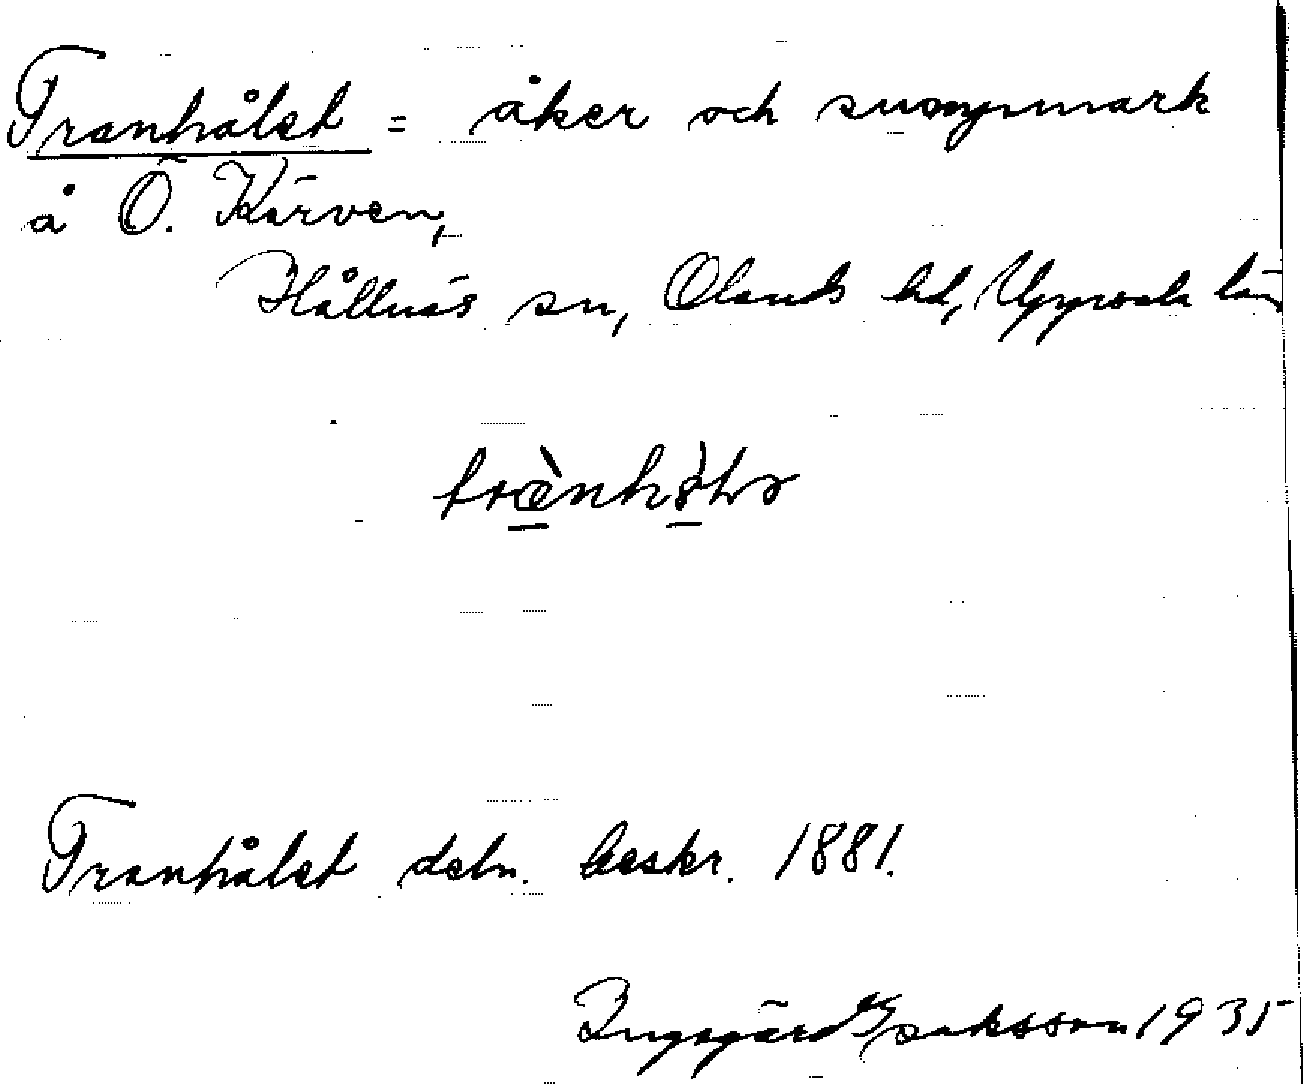 Tranhålet = åker och sumpmark
å Ö. Kärven,
Hållnäs sn, Olands hd, Uppsala län
Tranhålet deln. beskr. 1881.
Ingegärd Isaksson 1935